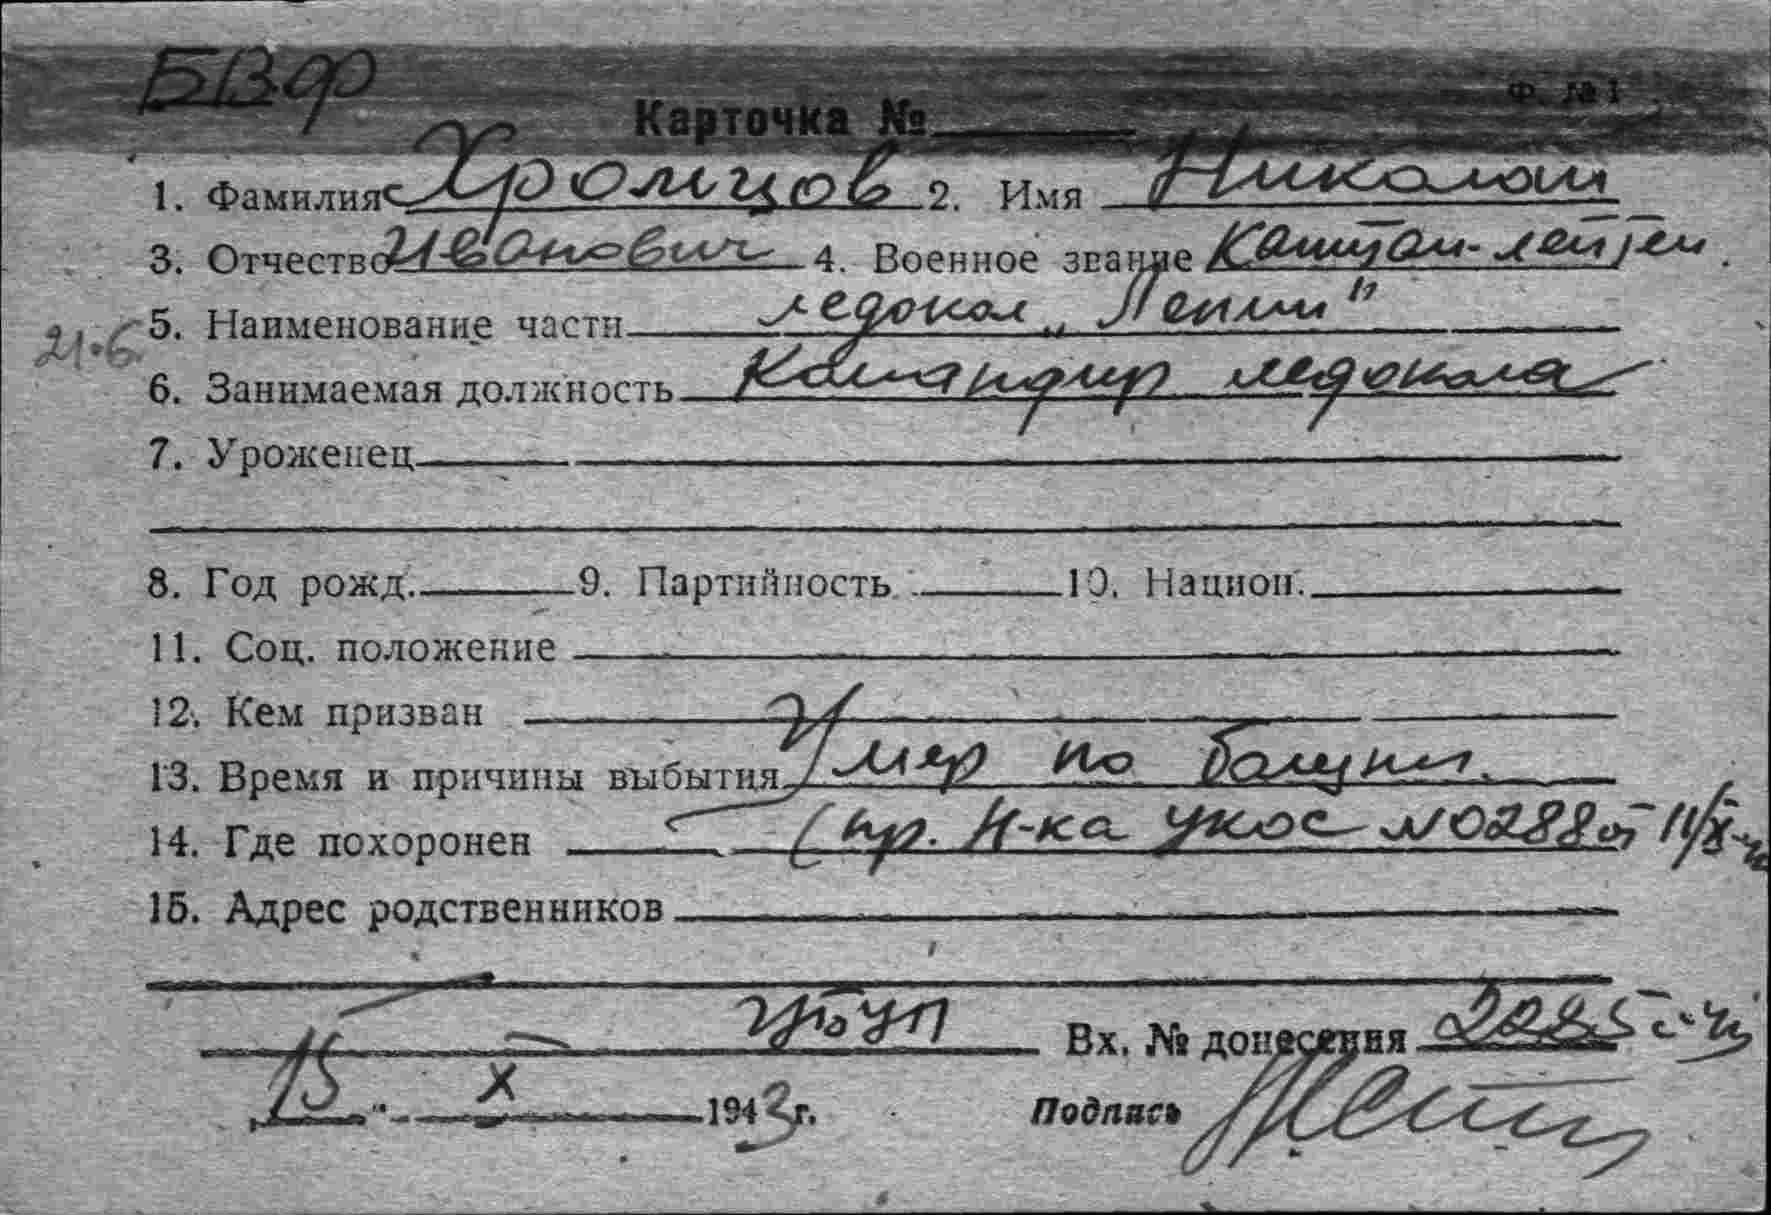 БВФ
Ф. №1
Карточка №
1. Фамилия Хромцов 2. Имя Николай
3. Отчество Иванович 4. Военное звание Капитан-лейтен.
21.6
5. Наименование части ледокол „Ленин"
6. Занимаемая должность Командир ледокола
7. Уроженец
8. Год рожд. 9. Партийность 10. Национ.
11. Соц. положение
12. Кем призван
13. Время и причины выбытия Умер по болезни.
14. Где похоронен (пр. Н-ка УКОС №0288 от 11/X-43
15. Адрес родственников
Вх. № донесения 2285
„15" X 1943 г. Подпись